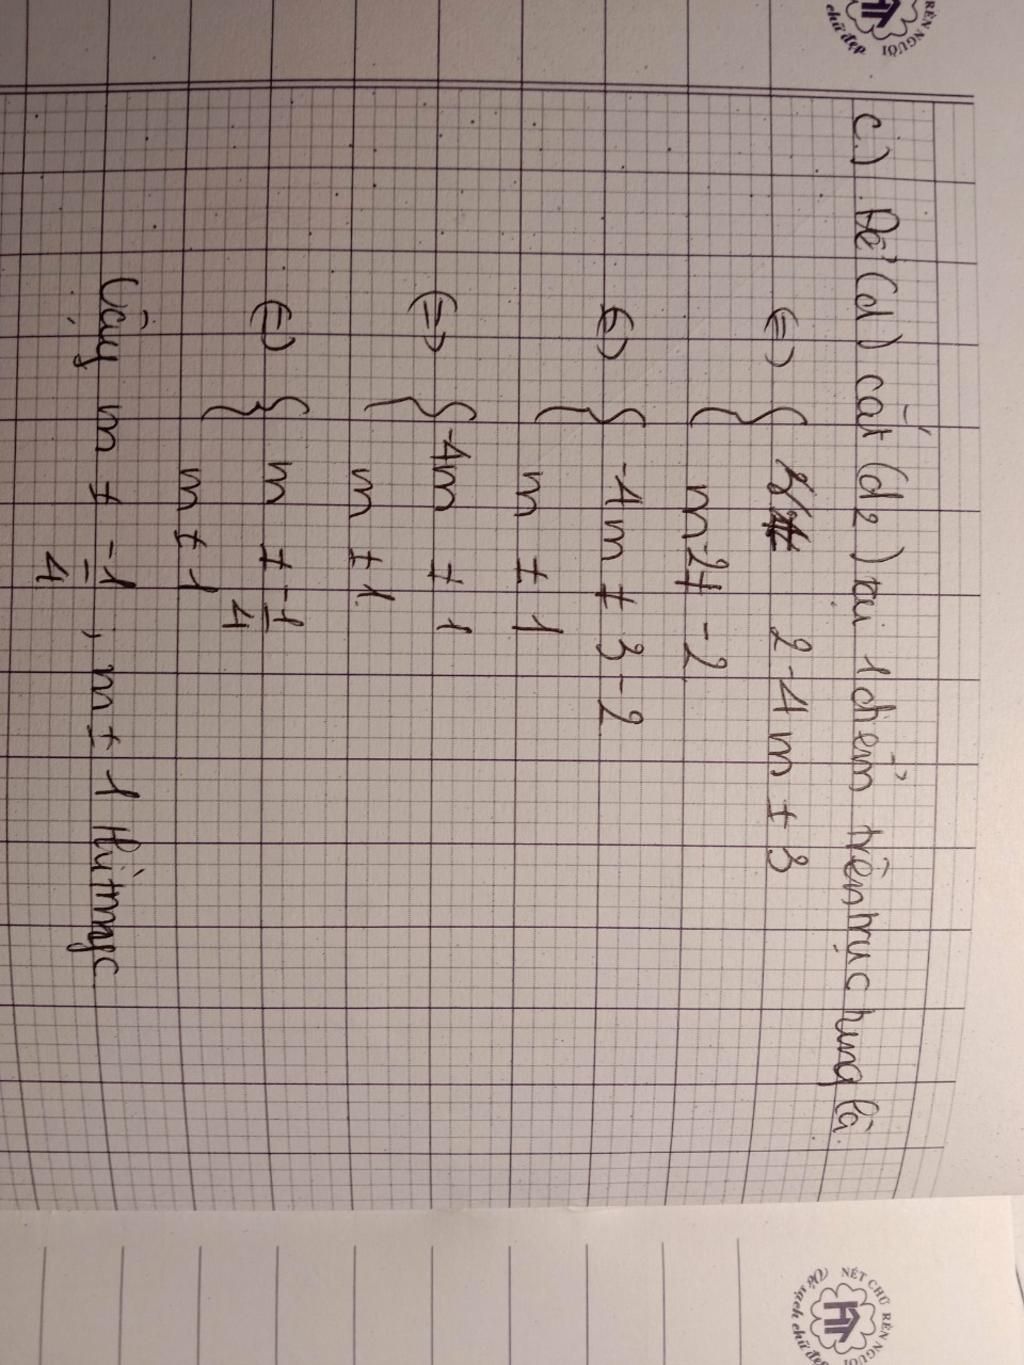 c.) Để (d) cắt (d₂) tại 1 điểm trên trục tung là
(=) { 2-4m ≠ 3
m-2 ≠ -2
(=) { -4m ≠ 3-2
m ≠ 1
(=) { -4m ≠ 1
m ≠ 1
(=) { m ≠ -1/4
m ≠ 1
Vậy m ≠ -1/4 , m ≠ 1 thì
RÈN NGƯỜI
chữ đẹp
NÉT CHỮ RÈN NGƯỜI
Vở sạch chữ đẹp